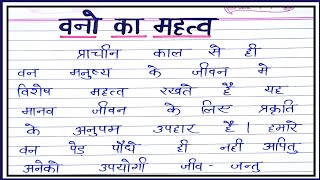 वनो का महत्व
प्राचीन काल से ही
वन मनुष्य के जीवन मे
विशेष महत्व रखते है यह
मानव जीवन के लिए प्रकृति
के अनुपम उपहार है। हमारे
वन पेड़ पौधे ही नही अपितु
अनेको उपयोगी जीव-जन्तु